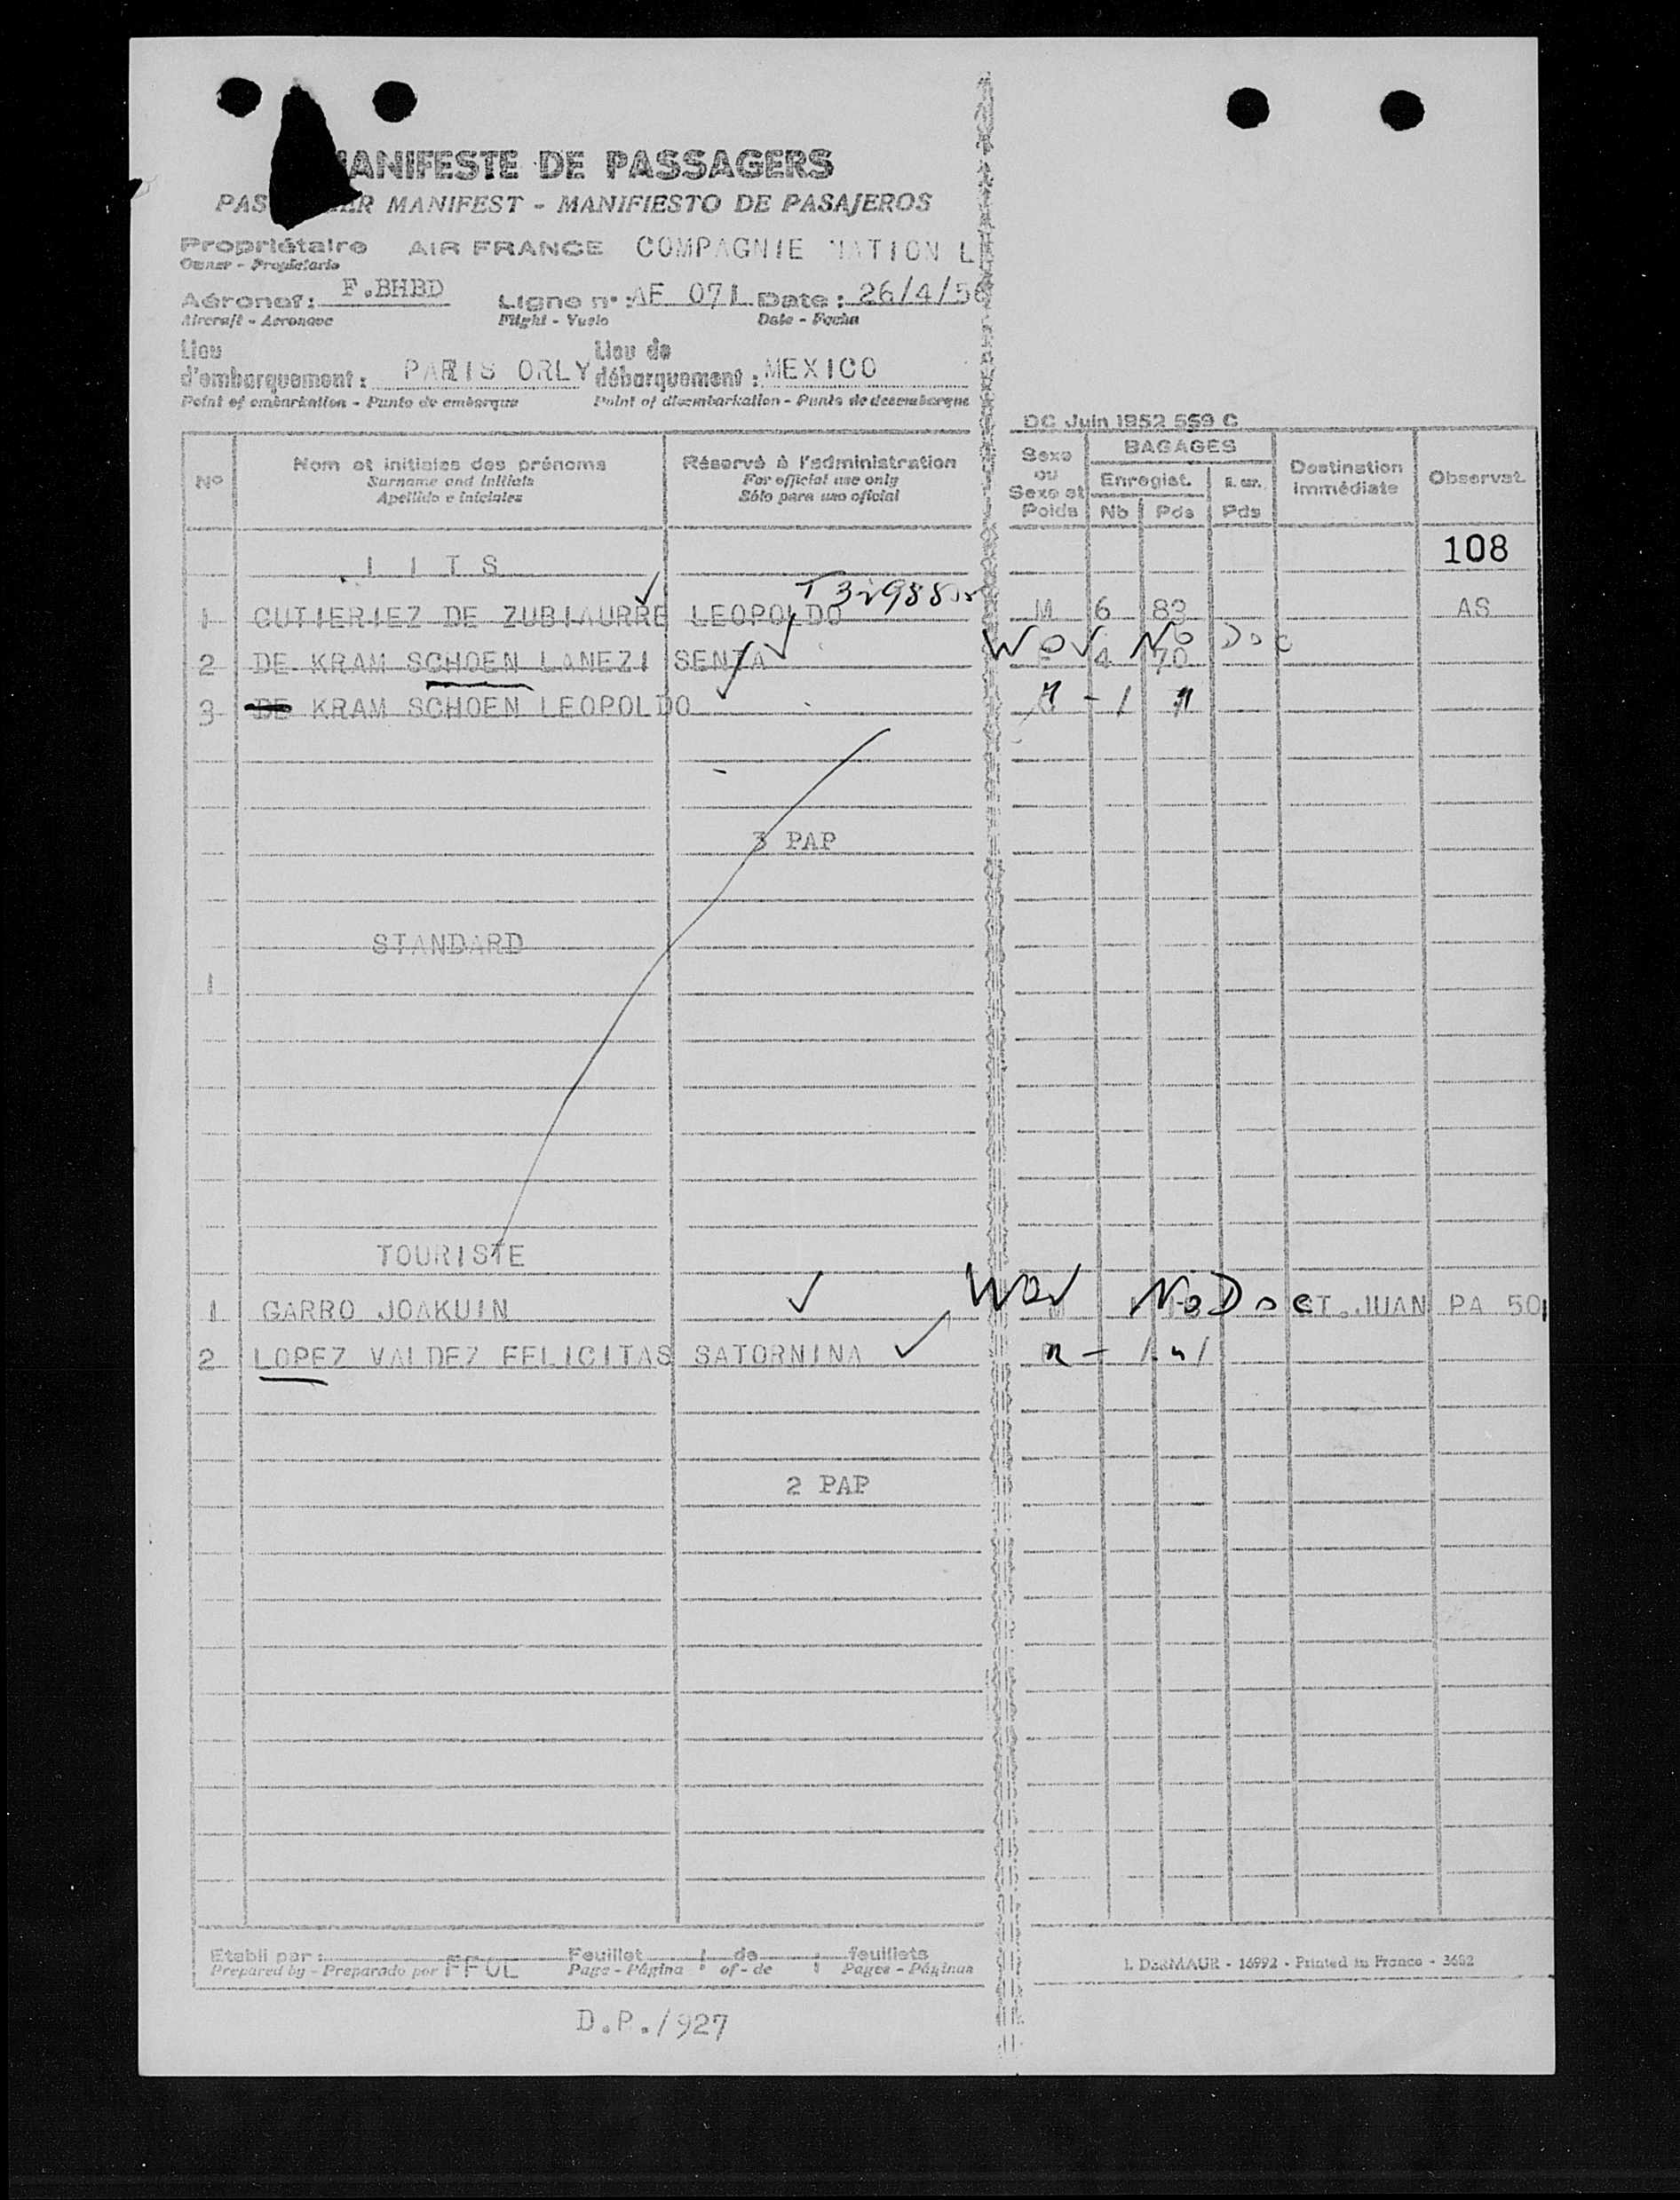 MANIFESTE DE PASSAGERS
PASSENGER MANIFEST - MANIFIESTO DE PASAJEROS
Propriétaire AIR FRANCE COMPAGNIE NATION L
Owner - Propietario
Aéronef: F.BHBD Ligne n°: AF 071 Date: 26/4/56
Aircraft - Aeronave Flight - Vuelo Date - Fecha
Lieu d'embarquement: PARIS ORLY Lieu de débarquement: MEXICO
Point of embarkation - Punto de embarque Point of disembarkation - Punto de desembarque
DC Juin 1952 559 C
N° Nom et initiales des prénoms Réservé à l'administration Sexe ou Sexe et Poids BAGAGES Destination immédiate Observat.
Surname and initials For official use only Enregist.
Apellido e iniciales Sólo para uso oficial Nb Pds Pds
108
L I T S
T 329885
1 GUTIERIEZ DE ZUBIAURRE LEOPOLDO M 6 83 AS
WOV No Doc
2 DE KRAM SCHOEN LANEZI SENTA 4 70
3 DE KRAM SCHOEN LEOPOLDO
3 PAP
STANDARD
1
TOURISTE
WOV No Doc
1 GARRO JOAKUIN M ST.JUAN PA 50
2 LOPEZ VALDEZ FELICITAS SATORNINA
2 PAP
Etabli par: Feuillet de feuillets
Prepared by - Preparado por Page - Página of - de Pages - Páginas
I. DERMAUR - 16992 - Printed in France - 3682
D.P./927